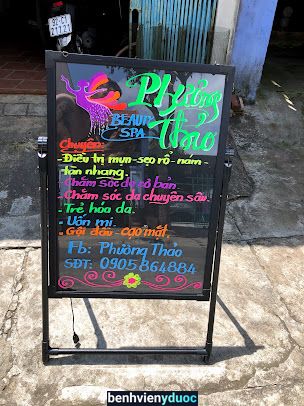 92-C1
217.21
Phượng
BEAUTY
SPA
Thảo
Chuyên:
- Điều trị mụn - sẹo rỗ - nám -
tàn nhang.
- Chăm sóc da cơ bản
- Chăm sóc da chuyên sâu.
- Trẻ hóa da.
- Uốn mi.
- Gội đầu - cạo mặt.
Fb: Phượng Thảo
SĐT: 0905 864 884
benhvienyduoc